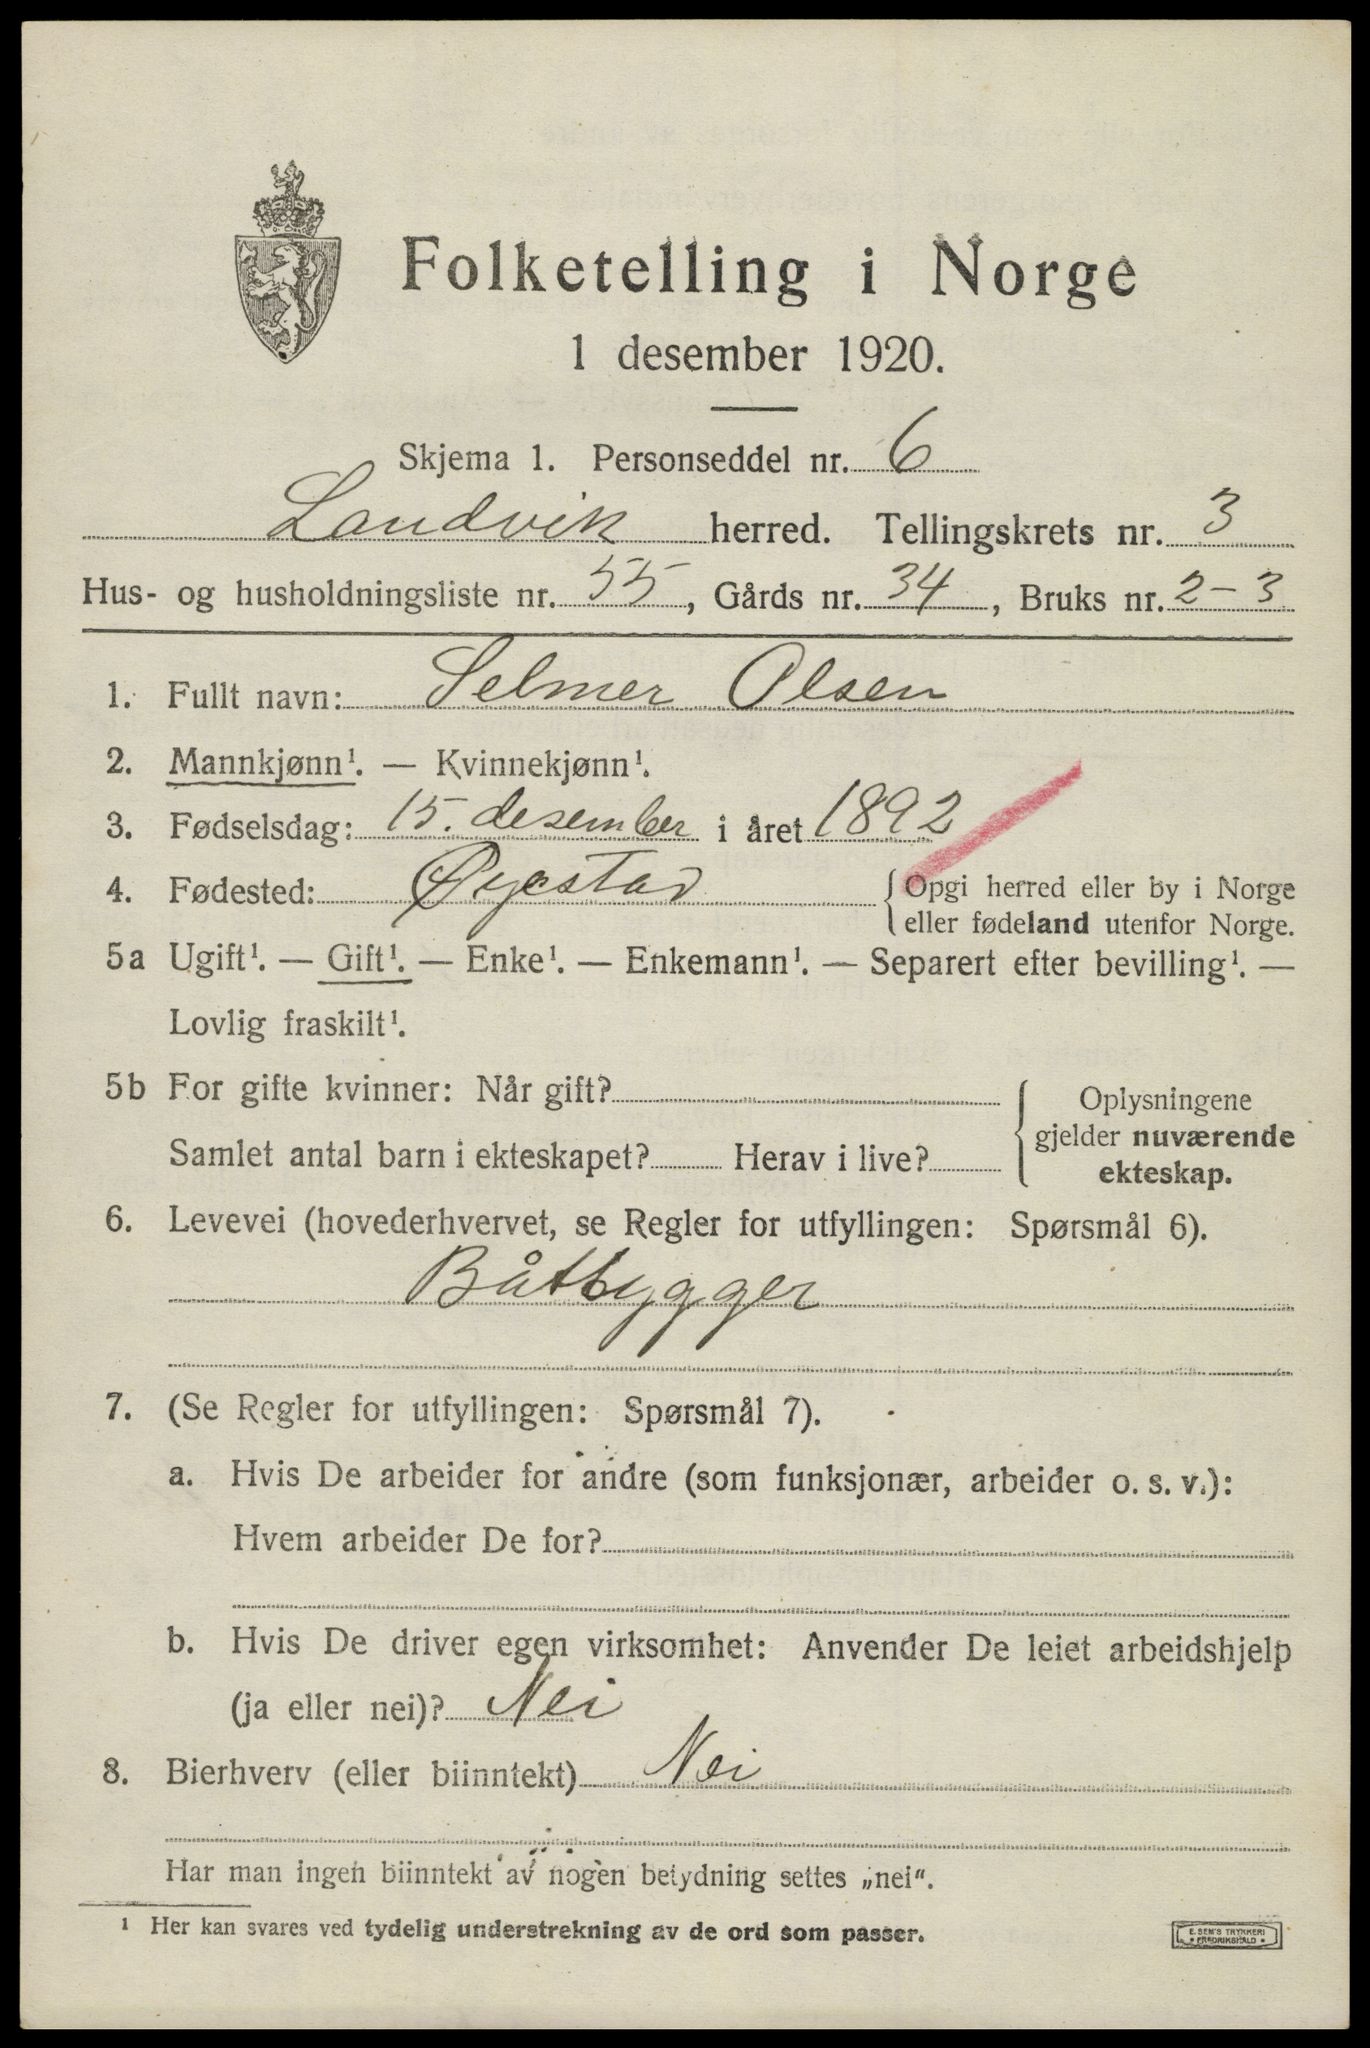 Folketelling i Norge
1 desember 1920.
Skjema 1. Personseddel nr. 6
Landvik herred. Tellingskrets nr. 3
Hus- og husholdningsliste nr. 55, Gårds nr. 34, Bruks nr. 2-3
1. Fullt navn: Selmer Olsen
2. Mannkjønn¹. — Kvinnekjønn¹.
3. Fødselsdag: 15. desember i året 1892
4. Fødested: Øyestad { Opgi herred eller by i Norge
eller fødeland utenfor Norge.
5a Ugift¹. — Gift¹. — Enke¹. — Enkemann¹. — Separert efter bevilling¹. —
Lovlig fraskilt¹.
5b For gifte kvinner: Når gift?
Samlet antal barn i ekteskapet? Herav i live?
Oplysningene
gjelder nuværende
ekteskap.
6. Levevei (hovederhvervet, se Regler for utfyllingen: Spørsmål 6).
Båtbygger
7. (Se Regler for utfyllingen: Spørsmål 7).
a. Hvis De arbeider for andre (som funksjonær, arbeider o. s. v.):
Hvem arbeider De for?
b. Hvis De driver egen virksomhet: Anvender De leiet arbeidshjelp
(ja eller nei)? Nei
8. Bierhverv (eller biinntekt) Nei
Har man ingen biinntekt av nogen betydning settes „nei".
¹ Her kan svares ved tydelig understrekning av de ord som passer.
E. SEM'S TRYKKERI
FREDRIKSHALD